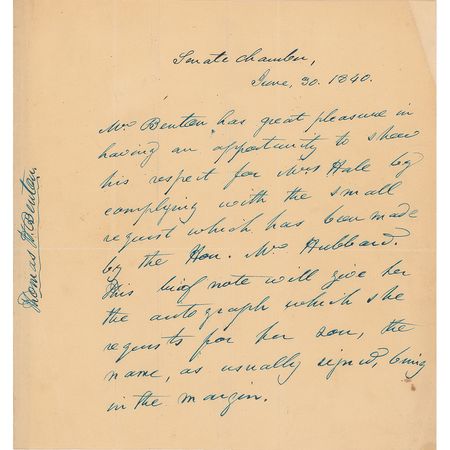 Senate Chamber,
June, 30. 1840.
Mr. Benton has great pleasure in
having an opportunity to show
his respect for Mrs Hale by
complying with the small
request which has been made
by the Hon. Mr. Hubbard.
This brief note will give her
the autograph which she
requests for her son, the
name, as usually signed, being
in the margin.
Thomas H. Benton.